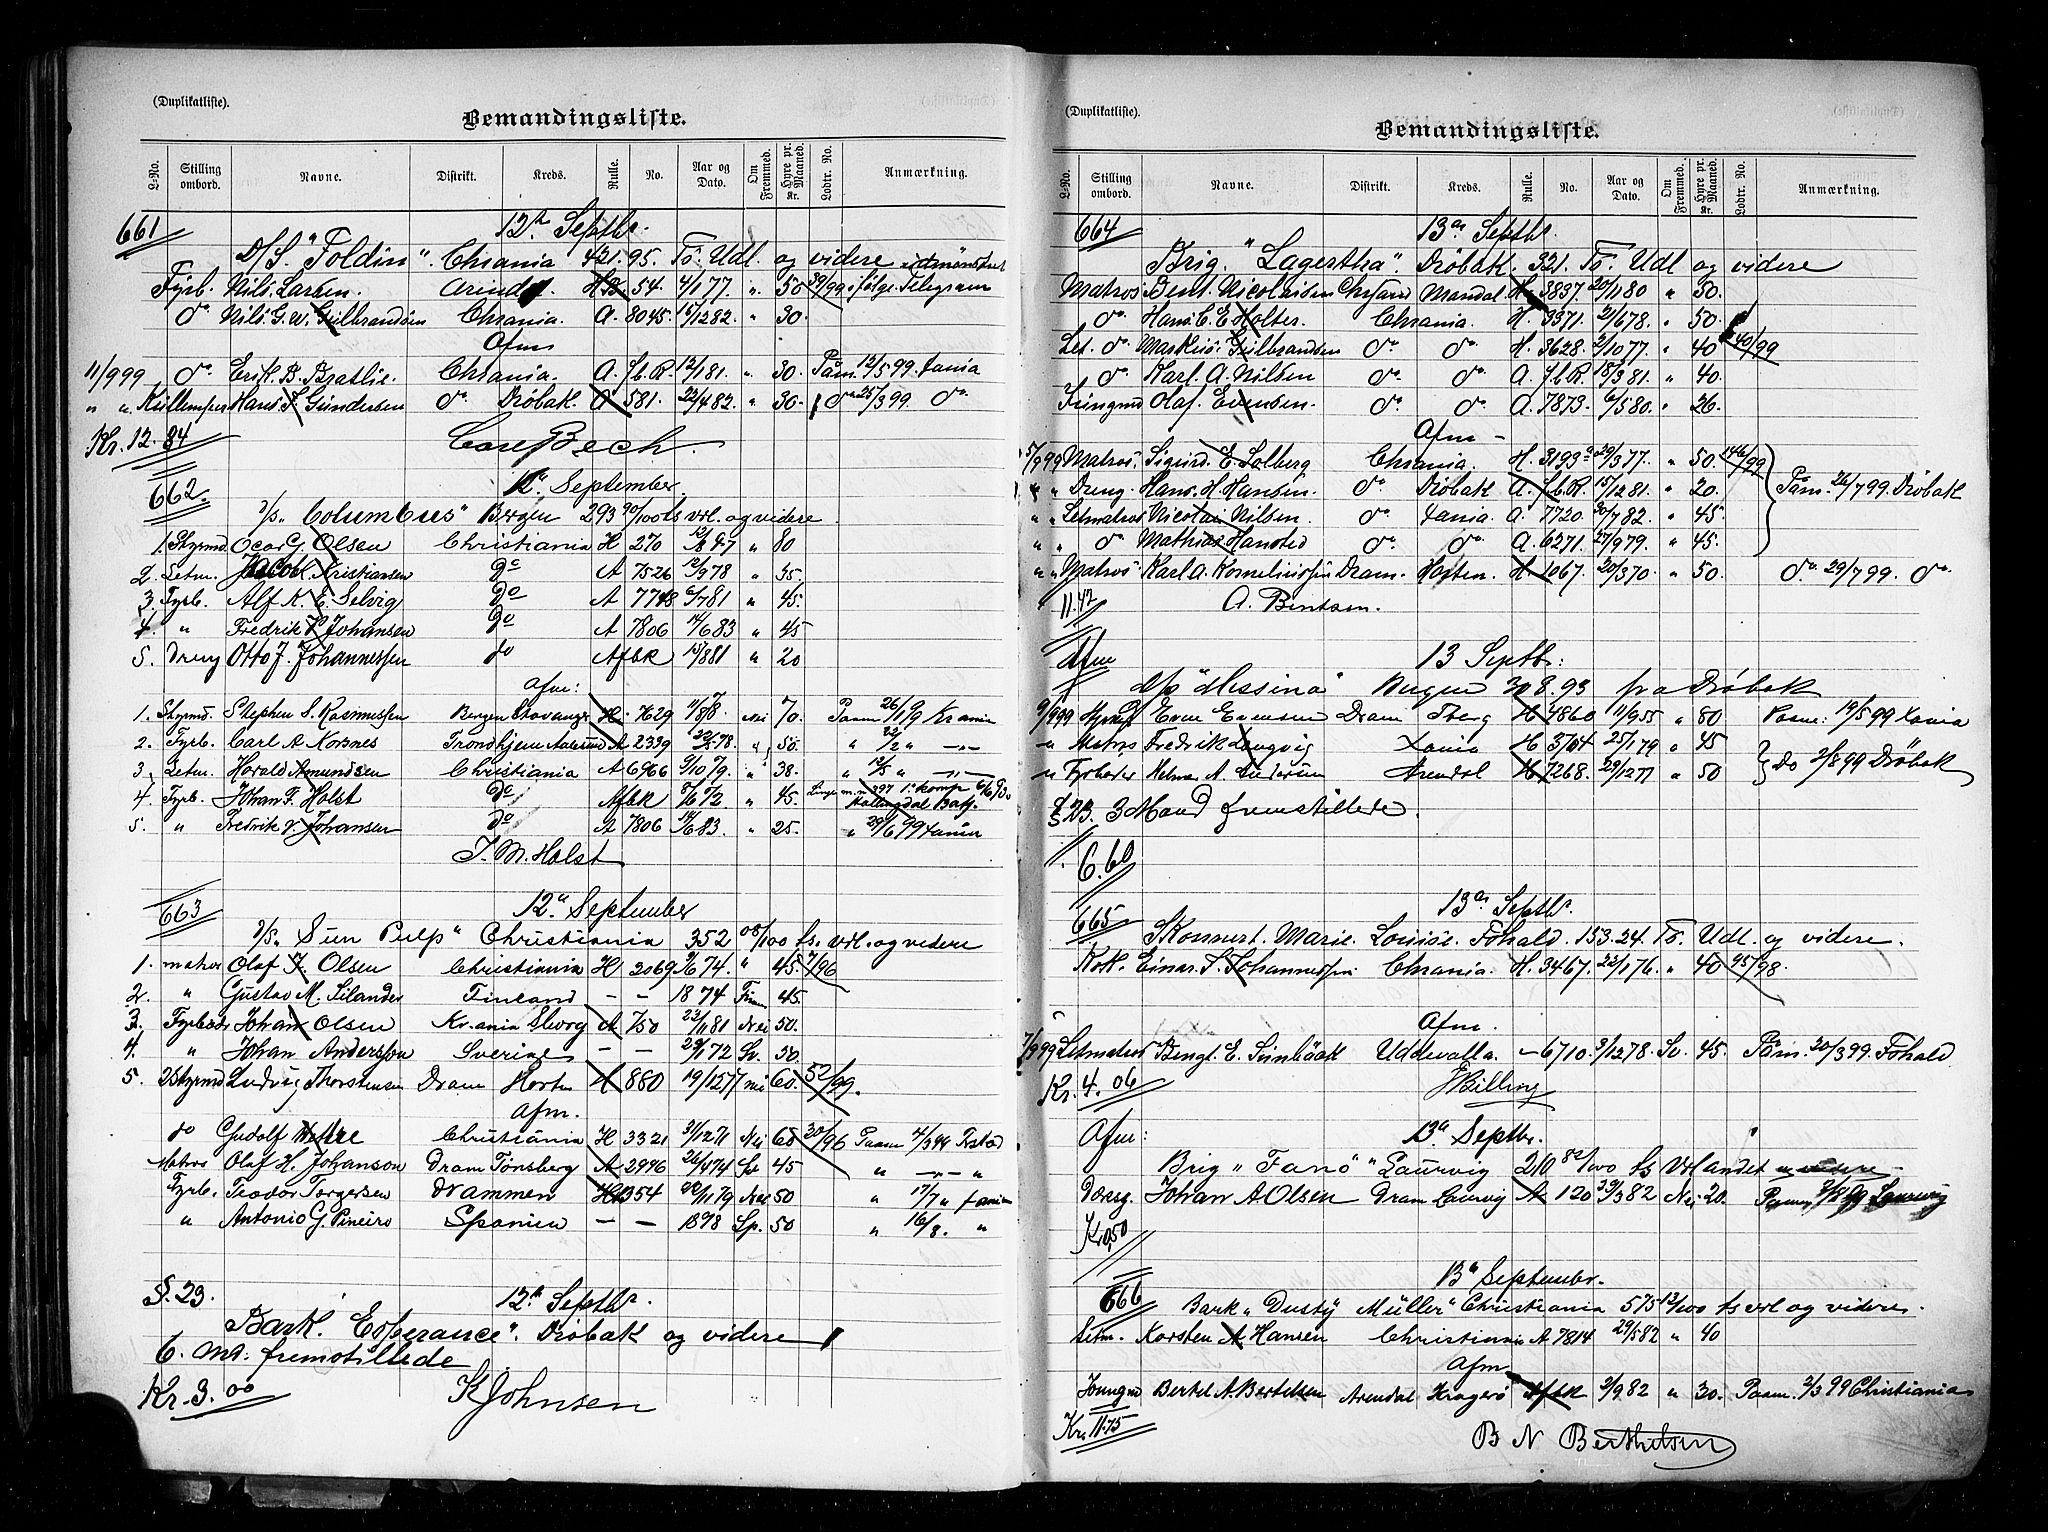 (Duplikatliste).
Bemandingsliste.
L-No. Stilling ombord. Navne. Distrikt. Kreds. Rulle. No. Aar og Dato. Om Fremmed. Hyre pr. Maaned. Kr. Lodtr. No. Anmærkning.
661 12te Septbr.
D/S. "Foldin". Chrania 421.95. To. Udl. og videre
Fyrb. Nils. Larsen. Arendal H 54. 4/1 77. " 50 39/99 ifølge Telegram
do. Nils G. W. Gulbrandsen Chrania. A. 8045. 15/12 82. " 30.
Afm
11/9 99 do. Erik. B. Bratlie. Chrania. A. fb.R. 12/1 81. " 30. Påm. 12/5 99. Xania
" " Küllemper Hans. F. Gundersen do. Drøbak. A 581. 22/4 82. " 30. do 25/3 99. do.
Kr. 12.84 Carl Bech.
662. 12te September.
D/S. "Columbus" Bergen 293 90/100 ts vrl. og videre
1. Styrmd. Oscar G. Olsen Christiania H 270 " 80
2. Letm. Jacob. Kristiansen do A 7526 12/9 78 " 35.
3. Fyrb. Alf K. E. Selvig do A 7748 6/7 81 " 45.
4. " Fredrik V. Johansen do A 7806 14/6 83 " 45
5. Dreng Otto J. Johannessen do AfbR 15/8 81 " 20
Afm:
1. Styrmd. Stephen S. Rasmussen Bergen Stavanger H 7629 Nei 70. Paam 26/1 99 Krania
2. Fyrb. Carl A Korsnes Trondhjem Aalesund A 2339 " 50. " 22/2 "
3. Letm. Harald Amundsen Christiania A 6966 9/10 79. " 38. " 12/5 "
4. Fyrb. Johan F. Holst do AfbR " 45.
5. " Fredrik V. Johansen do A 7806 14/6 83. " 25. " 29/6 99 Xania
J. M. Holst
663 12te September
D/S. "Sun Pulp" Christiania 352 08/100 ts. vrl. og videre
1. Matros Olaf F. Olsen Christiania H 2069 9/6 74. " 45. 7/96
2. " Gustav M. Silander Finland — — 18 74 Finn 45.
3. Fyrbøder Johan Olsen Kr.ania Sborg A 750 23/11 81 Nei 50.
4. " Johan Andersson Sverige — — 29/1 72 Sv. 50.
5. 2Styrmd Ludvig Thorstensen Dram Horten H 860 19/12 57 nei 60. 52/99.
Afm.
do Gudolf Wettre Christiania H 3321 31/12 71 Nei 60 30/96 Paam
Matros Olaf H. Johanson Dram Tønsberg A 2996 26/4 74 Sv 45 " — "
Fyrb. Teodor Torgersen Drammen H 1354 Nei 50 " 17/7 " Xania
" Antonio G. Pineiro Spanien — — 1898 Sp. 50 " 16/8. "
§. 23. 12te Septbr.
Bark. "Esperance". Drøbak og videre
6. Md: fremstillede
Kr. 3.00 K Johnsen
(Duplikatliste).
Bemandingsliste.
L-No. Stilling ombord. Navne. Distrikt. Kreds. Rulle. No. Aar og Dato. Om Fremmed. Hyre pr. Maaned. Kr. Lodtr. No. Anmærkning.
664 13de Septbr.
Brig. "Lagertha". Drøbak. 321. To. Udl og videre
Matros Bent. Nicolaisen Chrsand Mandal H. 3837. 20/11 80 " 50.
do. Hans C. E Holter. Chrania. H. 3371. 21/6 78. " 50.
Let. do. Markus. Gulbrandsen do. do. H. 3628. 2/10 77. " 40 40/99
do. Karl. A. Nilsen do. do. A. fb.R. 18/3 81. " 40.
Jungmd Olaf. Evensen. do. do. A. 7873. 6/5 80. " 26.
Afm —
5/9 99 Matros. Sigurd. E. Solberg Chrania. H. 3193 29/3 77. " 50. 146/99
" " Dreng. Hans. H. Hansen. do. Drøbak A. fb.R. 15/12 81. " 20. Påm. 26/7 99. Drøbak
" " Letmatros Nicolai Nilsen. do. Xania. A. 7720. 30/7 82. " 45.
" " do. Mathias Hansted do. do. A. 6271. 27/9 79. " 45.
" " Matros Karl A. Kornelinssen Dram. Horten. H. 1067. 20/3 70. " 50 do. 29/7 99. do.
11.42 A. Bentsen.
Afm 13 Septbr:
D/S "Messina" Bergen 308.93 fra Drøbak
9/9 99 Even Evensen Dram Tberg H 4860 11/9 55 " 80 Paam: 19/5 99 Xania
" Matros Fredrik Langvig Xania H 3764 25/1 79 " 45 do 2/8 99 Drøbak
" Fyrbøder Arendal H 7268. 29/12 77 " 50
§ 23. 3 Mand fremstillede.
6.60
665 13de Septbr.
Skonnert. Marie. Louise. Fshald. 153.24. To. Udl. og videre.
Kok. Einar. T. Johannessen. Chrania. H. 3467. 22/1 76. " 40 95/98.
Afm.
7/9 99 Letmatros Bengt. E. Sunbäck Uddevalla — 6710. 3/12 78. Sv. 45. Påm. 30/3 99. Fshald
Kr. 4.06 Billing
Afm: 13de Septbr.
Brig "Fanø" Laurvig 210 82/100 ts Vrlandet
Dreng. Johan A Olsen Dram Laurvig A 120 Nei 20. Paam Laurvig
Kr 0.50
666 13de September.
Bark "Dusty Müller" Christiania 575 13/100 ts vrl og videre.
Letm. Korsten A Hansen Christiania A 7814 29/5 82 " 40
Afm
Jungmd Bertel A. Bertelsen Arendal Kragerø AfbR 2/9 82 " 30. Paam. 2/3 99 Christiania
Kr. 11.75 B N Berthelsen